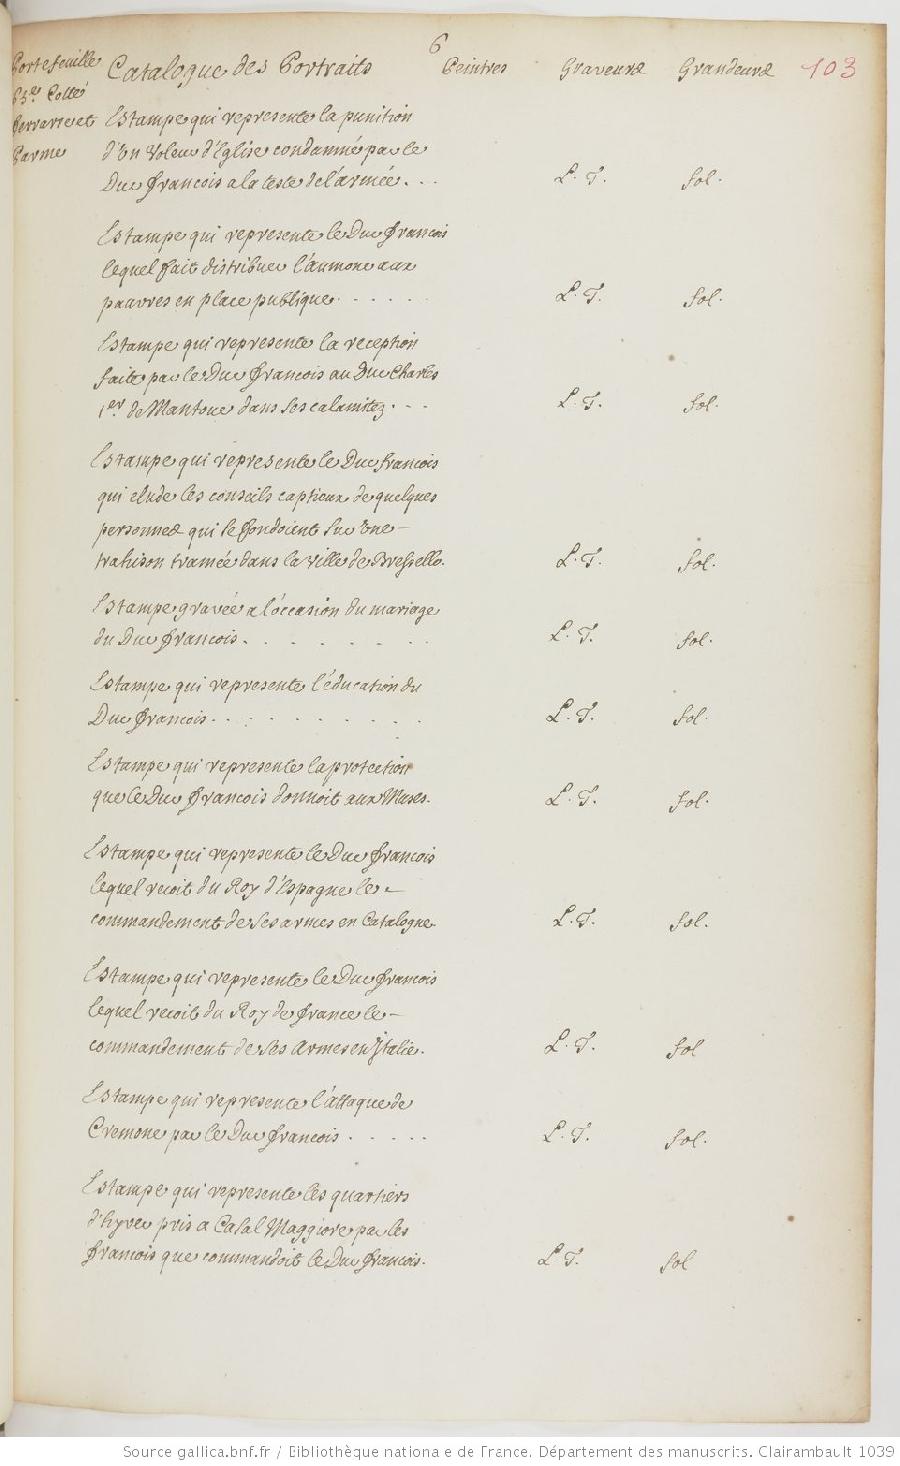 6
Portefeuille Catalogue des Portraits Peintres Graveurs Grandeurs 103
63.er Cotté
Ferrare et
Parme
Estampe qui represente la punition
d'un Voleur d'Eglise condamné par le
Duc francois a la teste de l'armée. . . L. T. fol.
Estampe qui represente le Duc francois
lequel fait distribuer l'aumone aux
pauvres en place publique . . . . . L. T. fol.
Estampe qui represente la reception
faite par le Duc francois au Duc Charles
1.er de Mantoue dans ses calamitez . . . L. T. fol.
Estampe qui represente le Duc francois
qui elude les conseils captieux de quelques
personnes qui le fondoient sur une
trahison tramée dans la ville de Bressello. L. T. fol.
Estampe gravée a l'occasion du mariage
du Duc francois . . . . . . L. T. fol.
Estampe qui represente l'éducation du
Duc francois . . . . . . . . L. T. fol.
Estampe qui represente la protection
que le Duc francois donnoit aux Muses. L. T. fol.
Estampe qui represente le Duc francois
lequel recoit du Roy d'Espagne le
commandement de ses armes en Catalogne. L. T. fol.
Estampe qui represente le Duc francois
lequel recoit du Roy de france le
commandement de ses Armes en Italie. L. T. fol
Estampe qui represente l'attaque de
Cremone par le Duc francois . . . . . L. T. fol.
Estampe qui represente les quartiers
d'hyver pris a Casal Maggiore par les
francois que commandoit le Duc francois. L T. fol
Source gallica.bnf.fr / Bibliothèque nationale de France. Département des manuscrits. Clairambault 1039